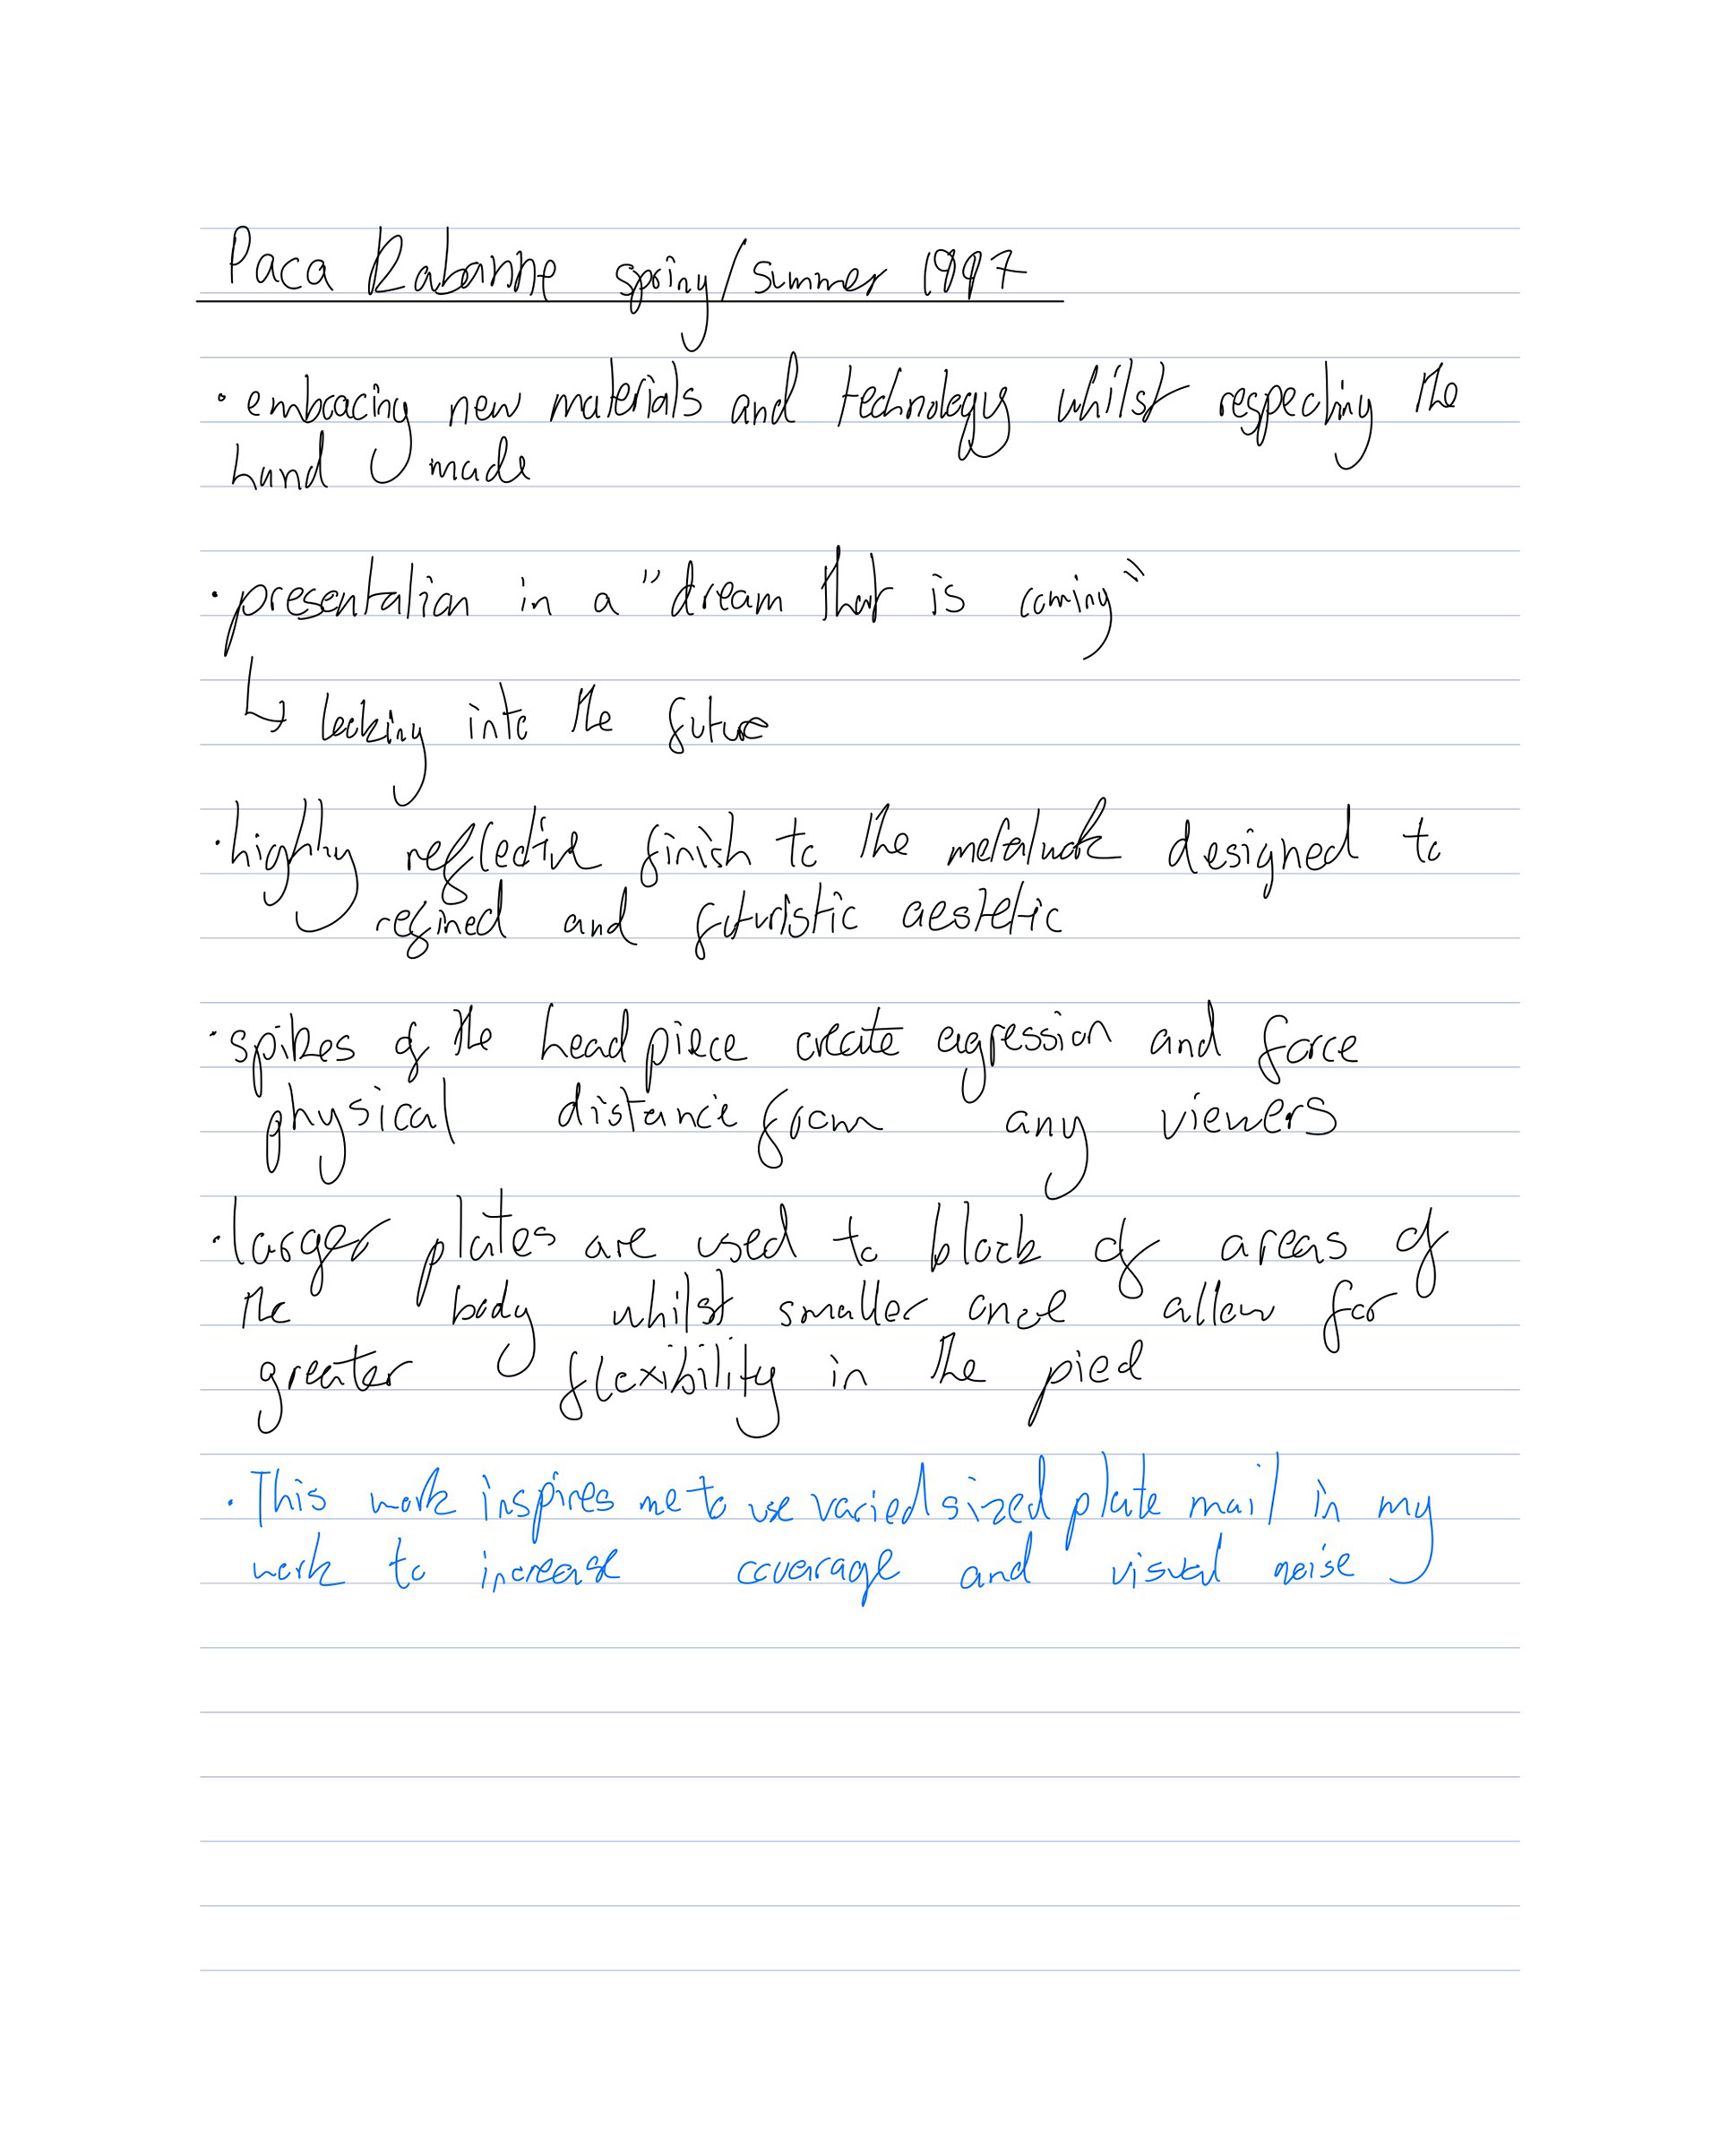 Paca Rabanne spring/summer 1997
• embracing new materials and technology whilst respecting the
hand made
• presentation in a "dream that is coming"
↳ looking into the future
• highly reflective finish to the metalwork designed to
refined and futuristic aestetic
• spikes of the head piece create agression and force
physical distance from any viewers
• larger plates are used to block of areas of
the body whilst smaller one allow for
greater flexibility in the pied
• This work inspires me to use varied sized plate mail in my
work to increase coverage and visual noise